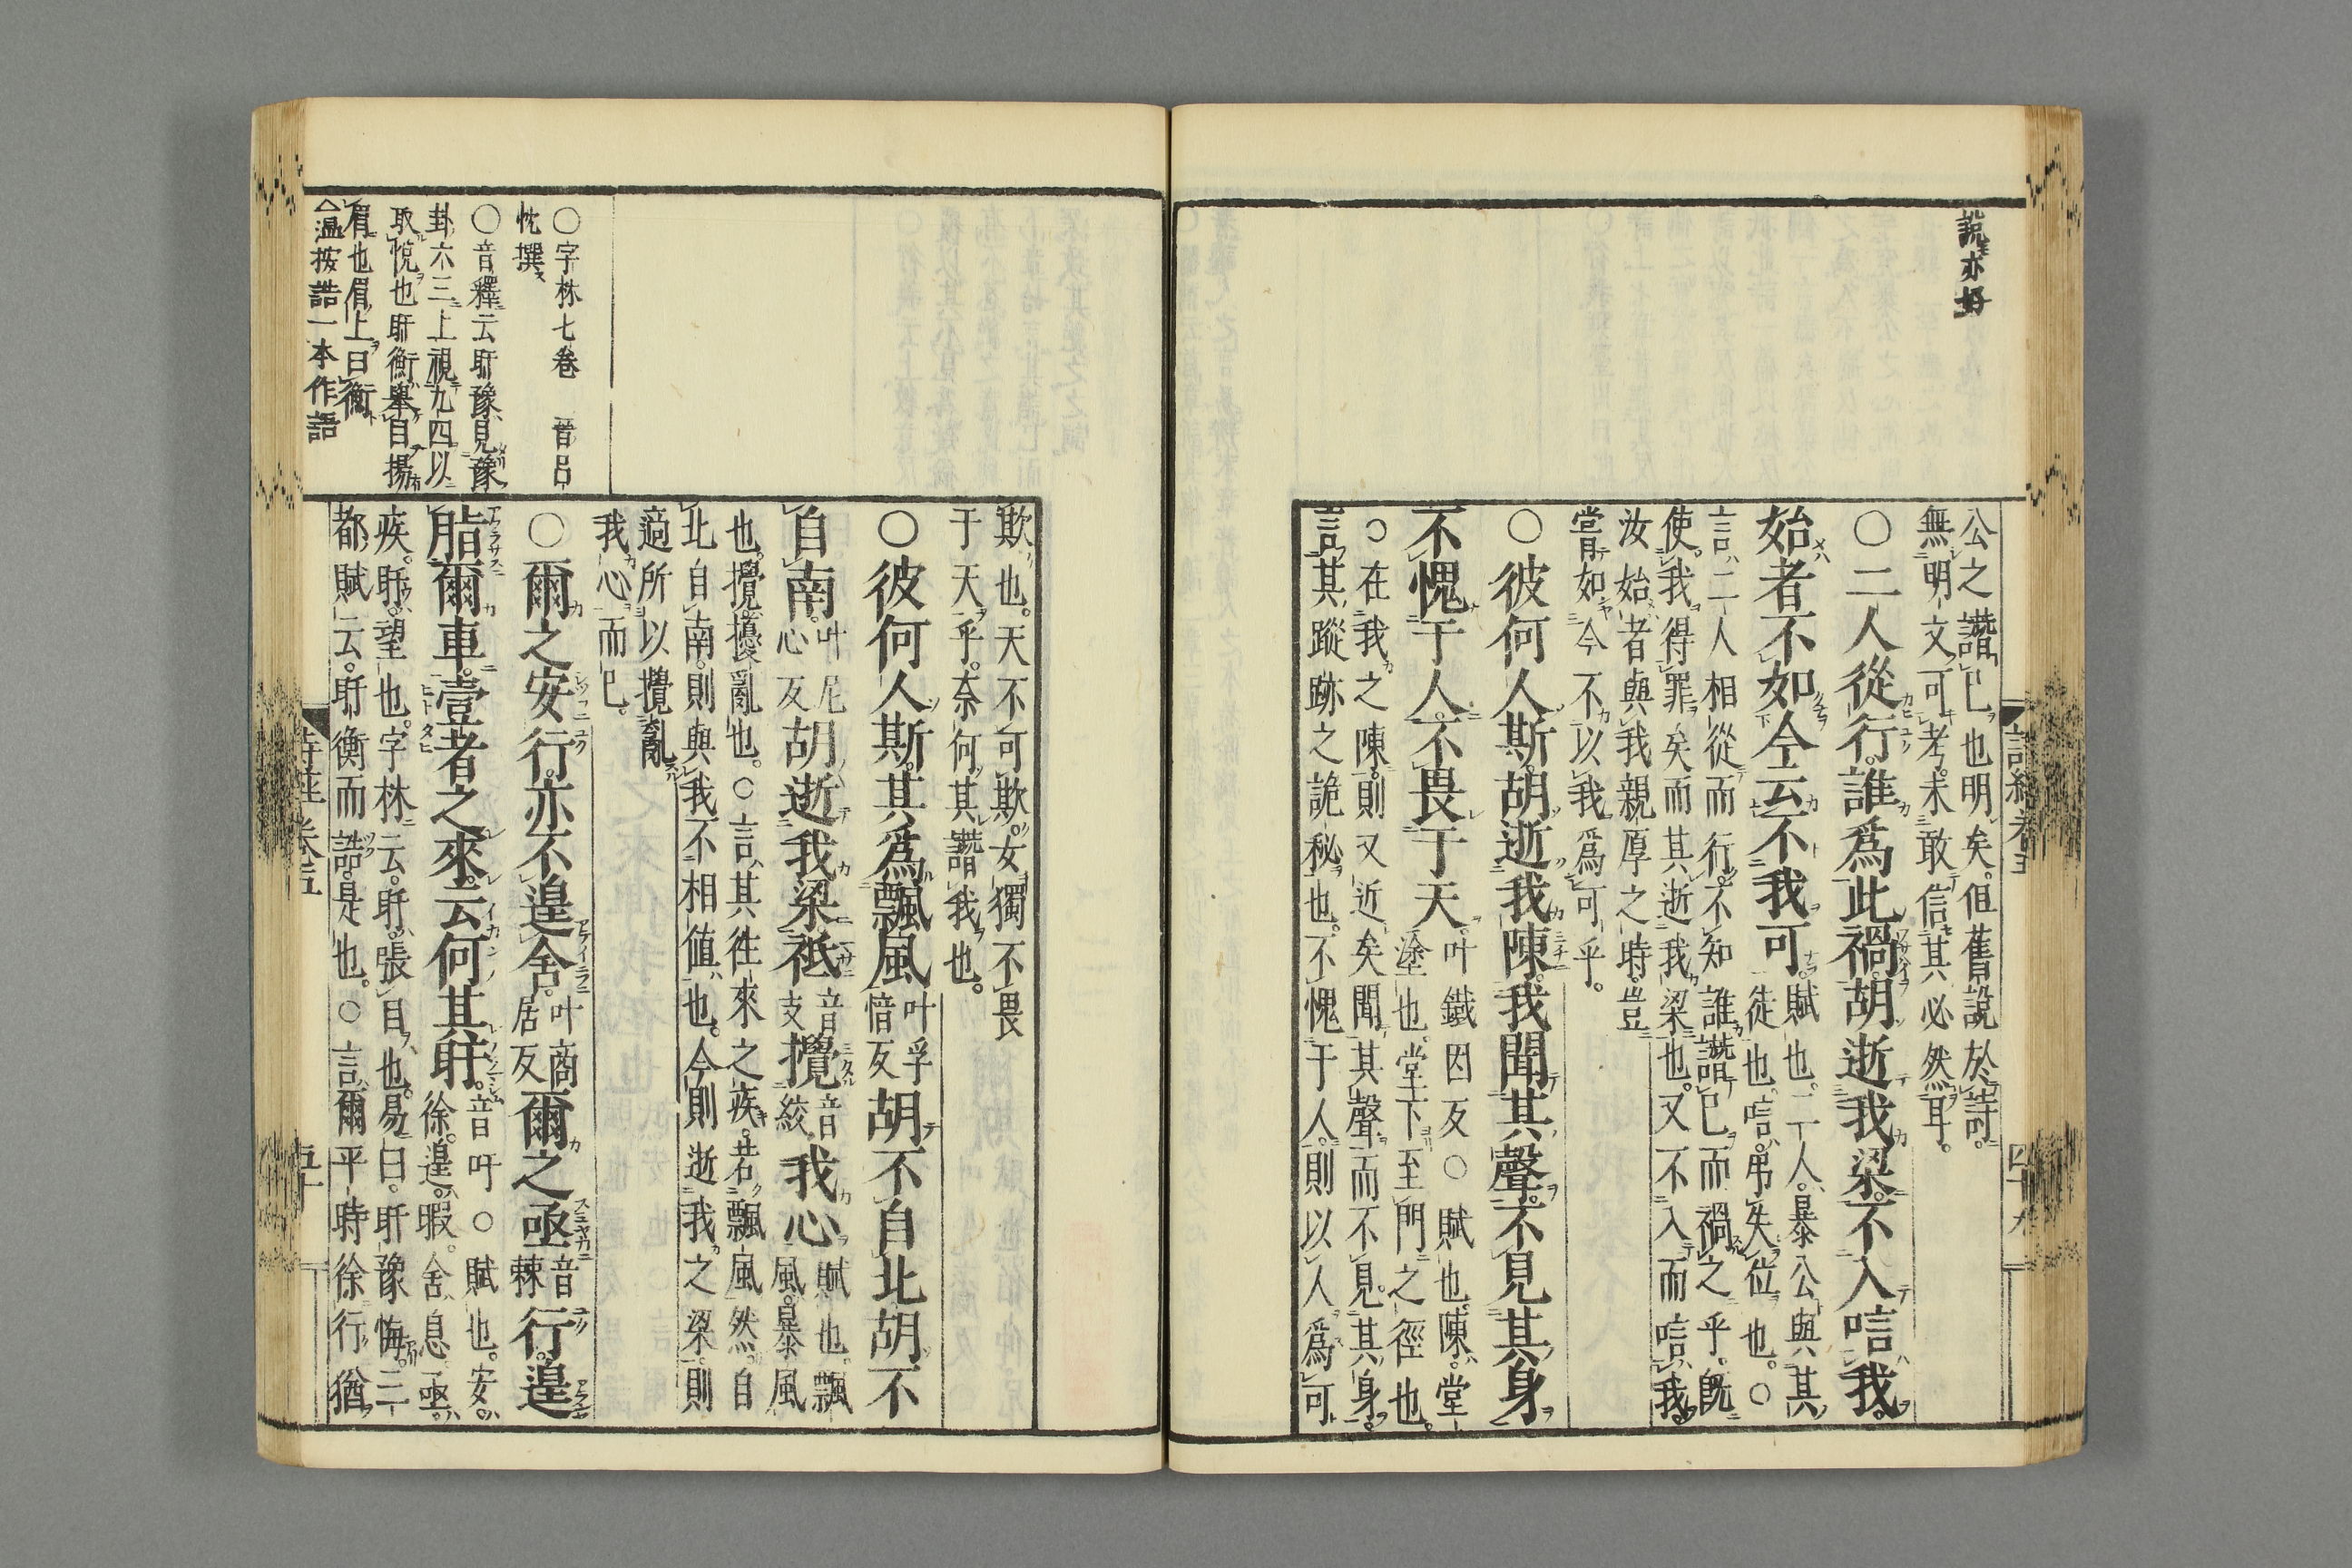 説亦好
公之譖已也明矣。但舊說於詩。
無明文可考。未敢信其必然耳。
○二人從行。誰爲此禍。胡逝我梁。不入唁我。
始者不如今。云不我可。賦也。二人。暴公與其徒也。唁。弔失位也。○
言二人相從而行。不知誰譖己而禍之乎。既
使我得罪矣。而其逝我梁也。又不入而唁我。
汝始者與我親厚之時。豈
嘗如今不以我爲可乎。
○彼何人斯。胡逝我陳。我聞其聲。不見其身。
不愧于人。不畏于天。叶鐵因反○賦也。陳。堂塗也。堂下至門之徑也。
○在我之陳。則又近矣。聞其聲而不見其身。
言其蹤跡之詭秘也。不愧于人。則以人爲可
詩經卷五
四十九
欺也。天不可欺。女獨不畏
于天乎。奈何其譖我也。
○彼何人斯。其爲飄風。叶孚愔反胡不自北。胡不
自南。叶尼心反胡逝我梁。祗音支攪音絞我心。賦也。飄風。暴風
也。攪。擾亂也。○言其往來之疾。若飄風然。自
北自南。則與我不相値也。今則逝我之梁。則
適所以攪亂
我心而已。
○爾之安行。亦不遑舍。叶商居反爾之亟音棘行。遑
脂爾車。壹者之來。云何其盱。音吁○賦也。安。徐。遑。暇。舍。息。亟。
疾。盱。望也。字林云。盱。張目也。易曰。盱豫悔。三
都賦云。盱衡而誥。是也。○言爾平時徐行猶
○字林七卷　晉呂
忱撰
○音釋云盱豫見豫
卦六三上視九四以
取悅也盱衡擧目揚
眉也眉上曰衡
△温按誥一本作語
詩経卷五
五十